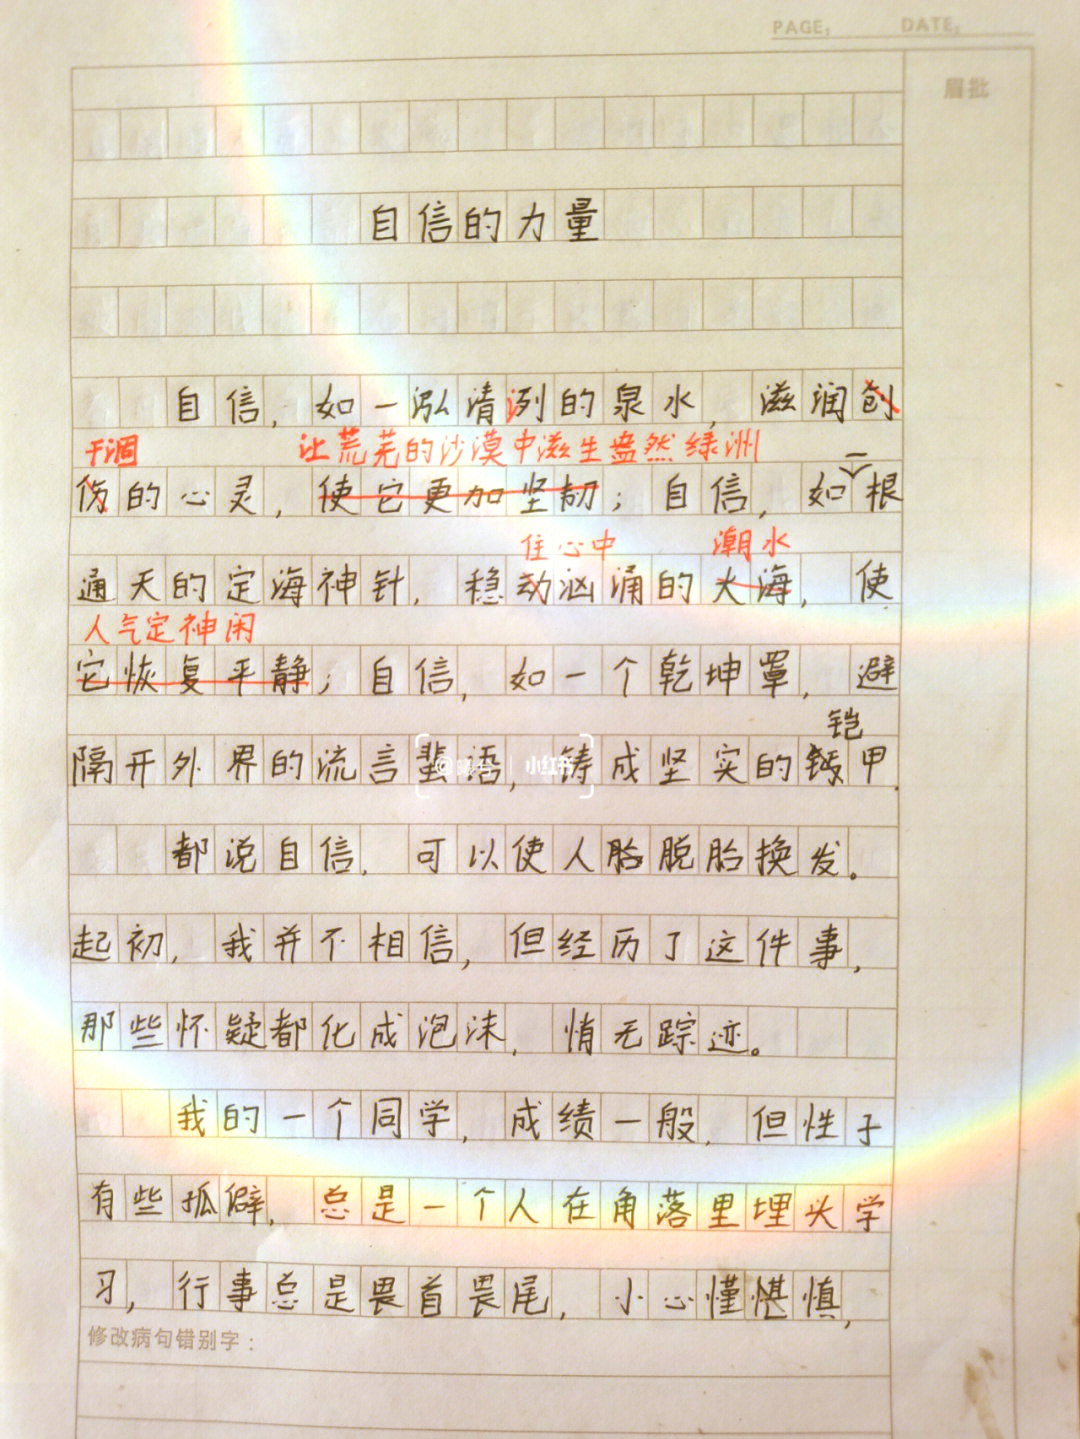 PAGE: DATE:
眉批
自信的力量
自信，如一泓清冽的泉水，滋润创
干涸 让荒芜的沙漠中滋生盎然绿洲
伤的心灵，使它更加坚韧；自信，如一根
住心中 潮水
通天的定海神针，稳动汹涌的大海，使
人气定神闲
它恢复平静；自信，如一个乾坤罩，避
铠
隔开外界的流言蜚语，铸成坚实的甲.
小红书
都说自信，可以使人胎脱胎换发。
起初，我并不相信，但经历了这件事，
那些怀疑都化成泡沫，悄无踪迹。
我的一个同学，成绩一般，但性子
有些孤僻，总是一个人在角落里埋头学
习，行事总是畏首畏尾，小心慬慎，
修改病句错别字：